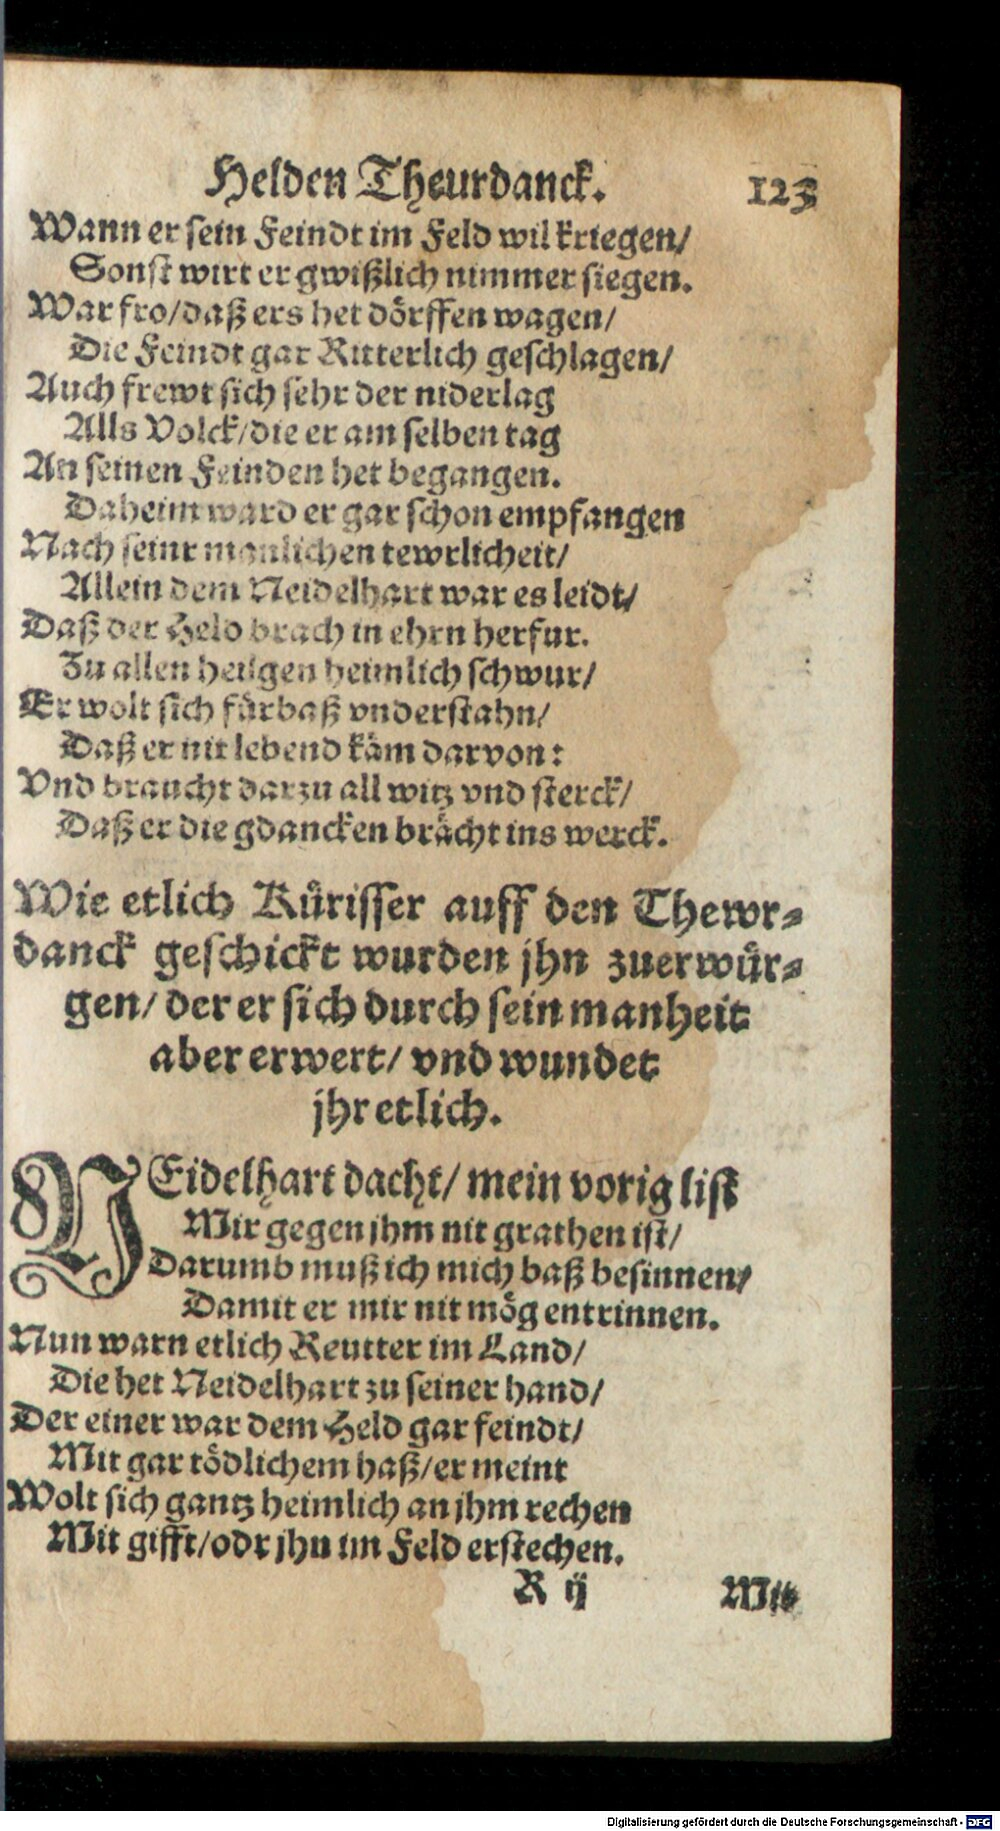 Helden Theurdanck. 123
Wann er sein Feindt im Feld wil kriegen/
Sonst wirt er gwißlich nimmer siegen.
War fro/daß ers het dörffen wagen/
Die Feindt gar Ritterlich geschlagen/
Auch frewt sich sehr der niderlag
Alls Volck/die er am selben tag
An seinen Feinden het begangen.
Daheim ward er gar schon empfangen
Nach seinr manlichen tewrlicheit/
Allein dem Neidelhart war es leidt/
Daß der Held brach in ehrn herfur.
Zu allen heilgen heimlich schwur/
Er wolt sich fürbaß vnderstahn/
Daß er nit lebend käm darvon:
Vnd braucht darzu all witz vnd sterck/
Daß er die gdancken brächt ins werck.
Wie etlich Kürisser auff den Thewr-
danck geschickt wurden jhn zuerwür-
gen/ der er sich durch sein manheit
aber erwert/ vnd wundet
jhr etlich.
NEidelhart dacht/ mein vorig list
Mir gegen jhm nit grathen ist/
Darumb muß ich mich baß besinnen/
Damit er mir nit mög entrinnen.
Nun warn etlich Reutter im Land/
Die het Neidelhart zu seiner hand/
Der einer war dem Held gar feindt/
Mit gar tödlichem haß/er meint
Wolt sich gantz heimlich an jhm rechen
Mit gifft/odr jhn im Feld erstechen.
R ij Mit
Digitalisierung gefördert durch die Deutsche Forschungsgemeinschaft - DFG